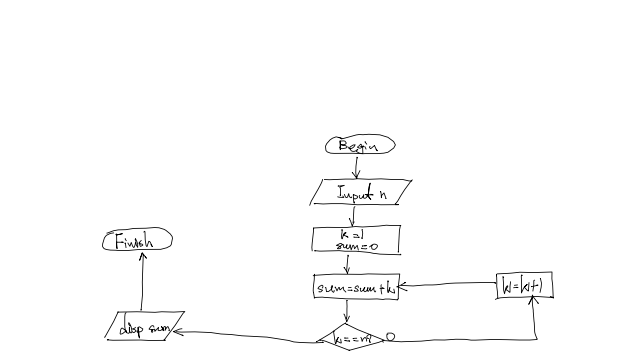 Begin
Input n
k=1
sum=0
sum=sum+k
k==n?
0
k=k+1
disp sum
Finish